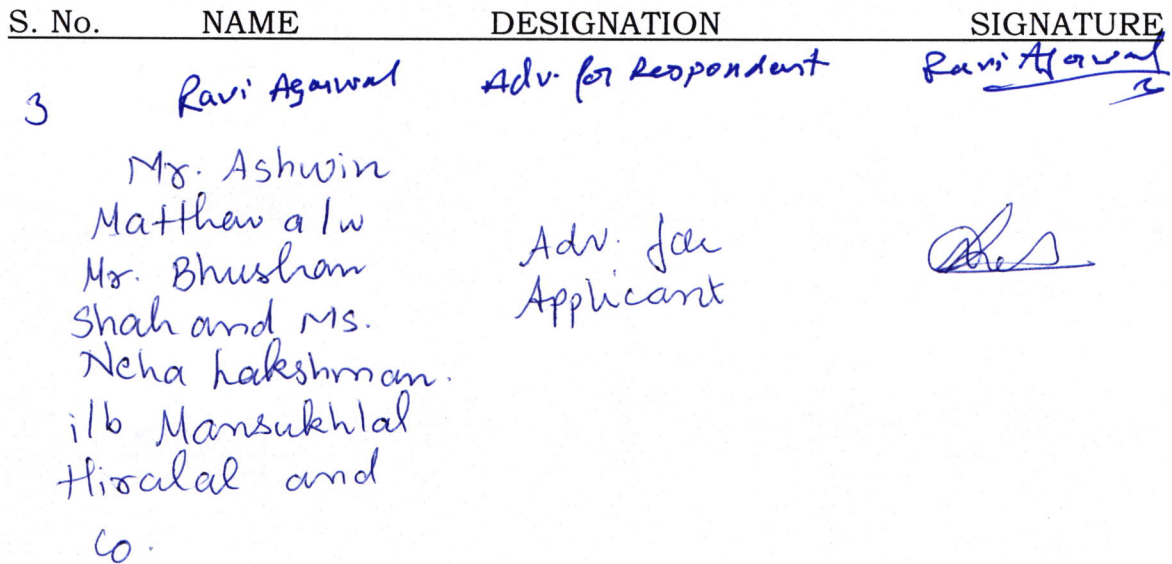 S. No. NAME DESIGNATION SIGNATURE
3 Ravi Agarwal Adv. for Respondent Ravi Agarwal
Mr. Ashwin
Matthew a/w
Mr. Bhushan
Shah and Ms.
Neha Lakshman.
i/b Mansukhlal
Hiralal and
Co.
Adv. for
Applicant